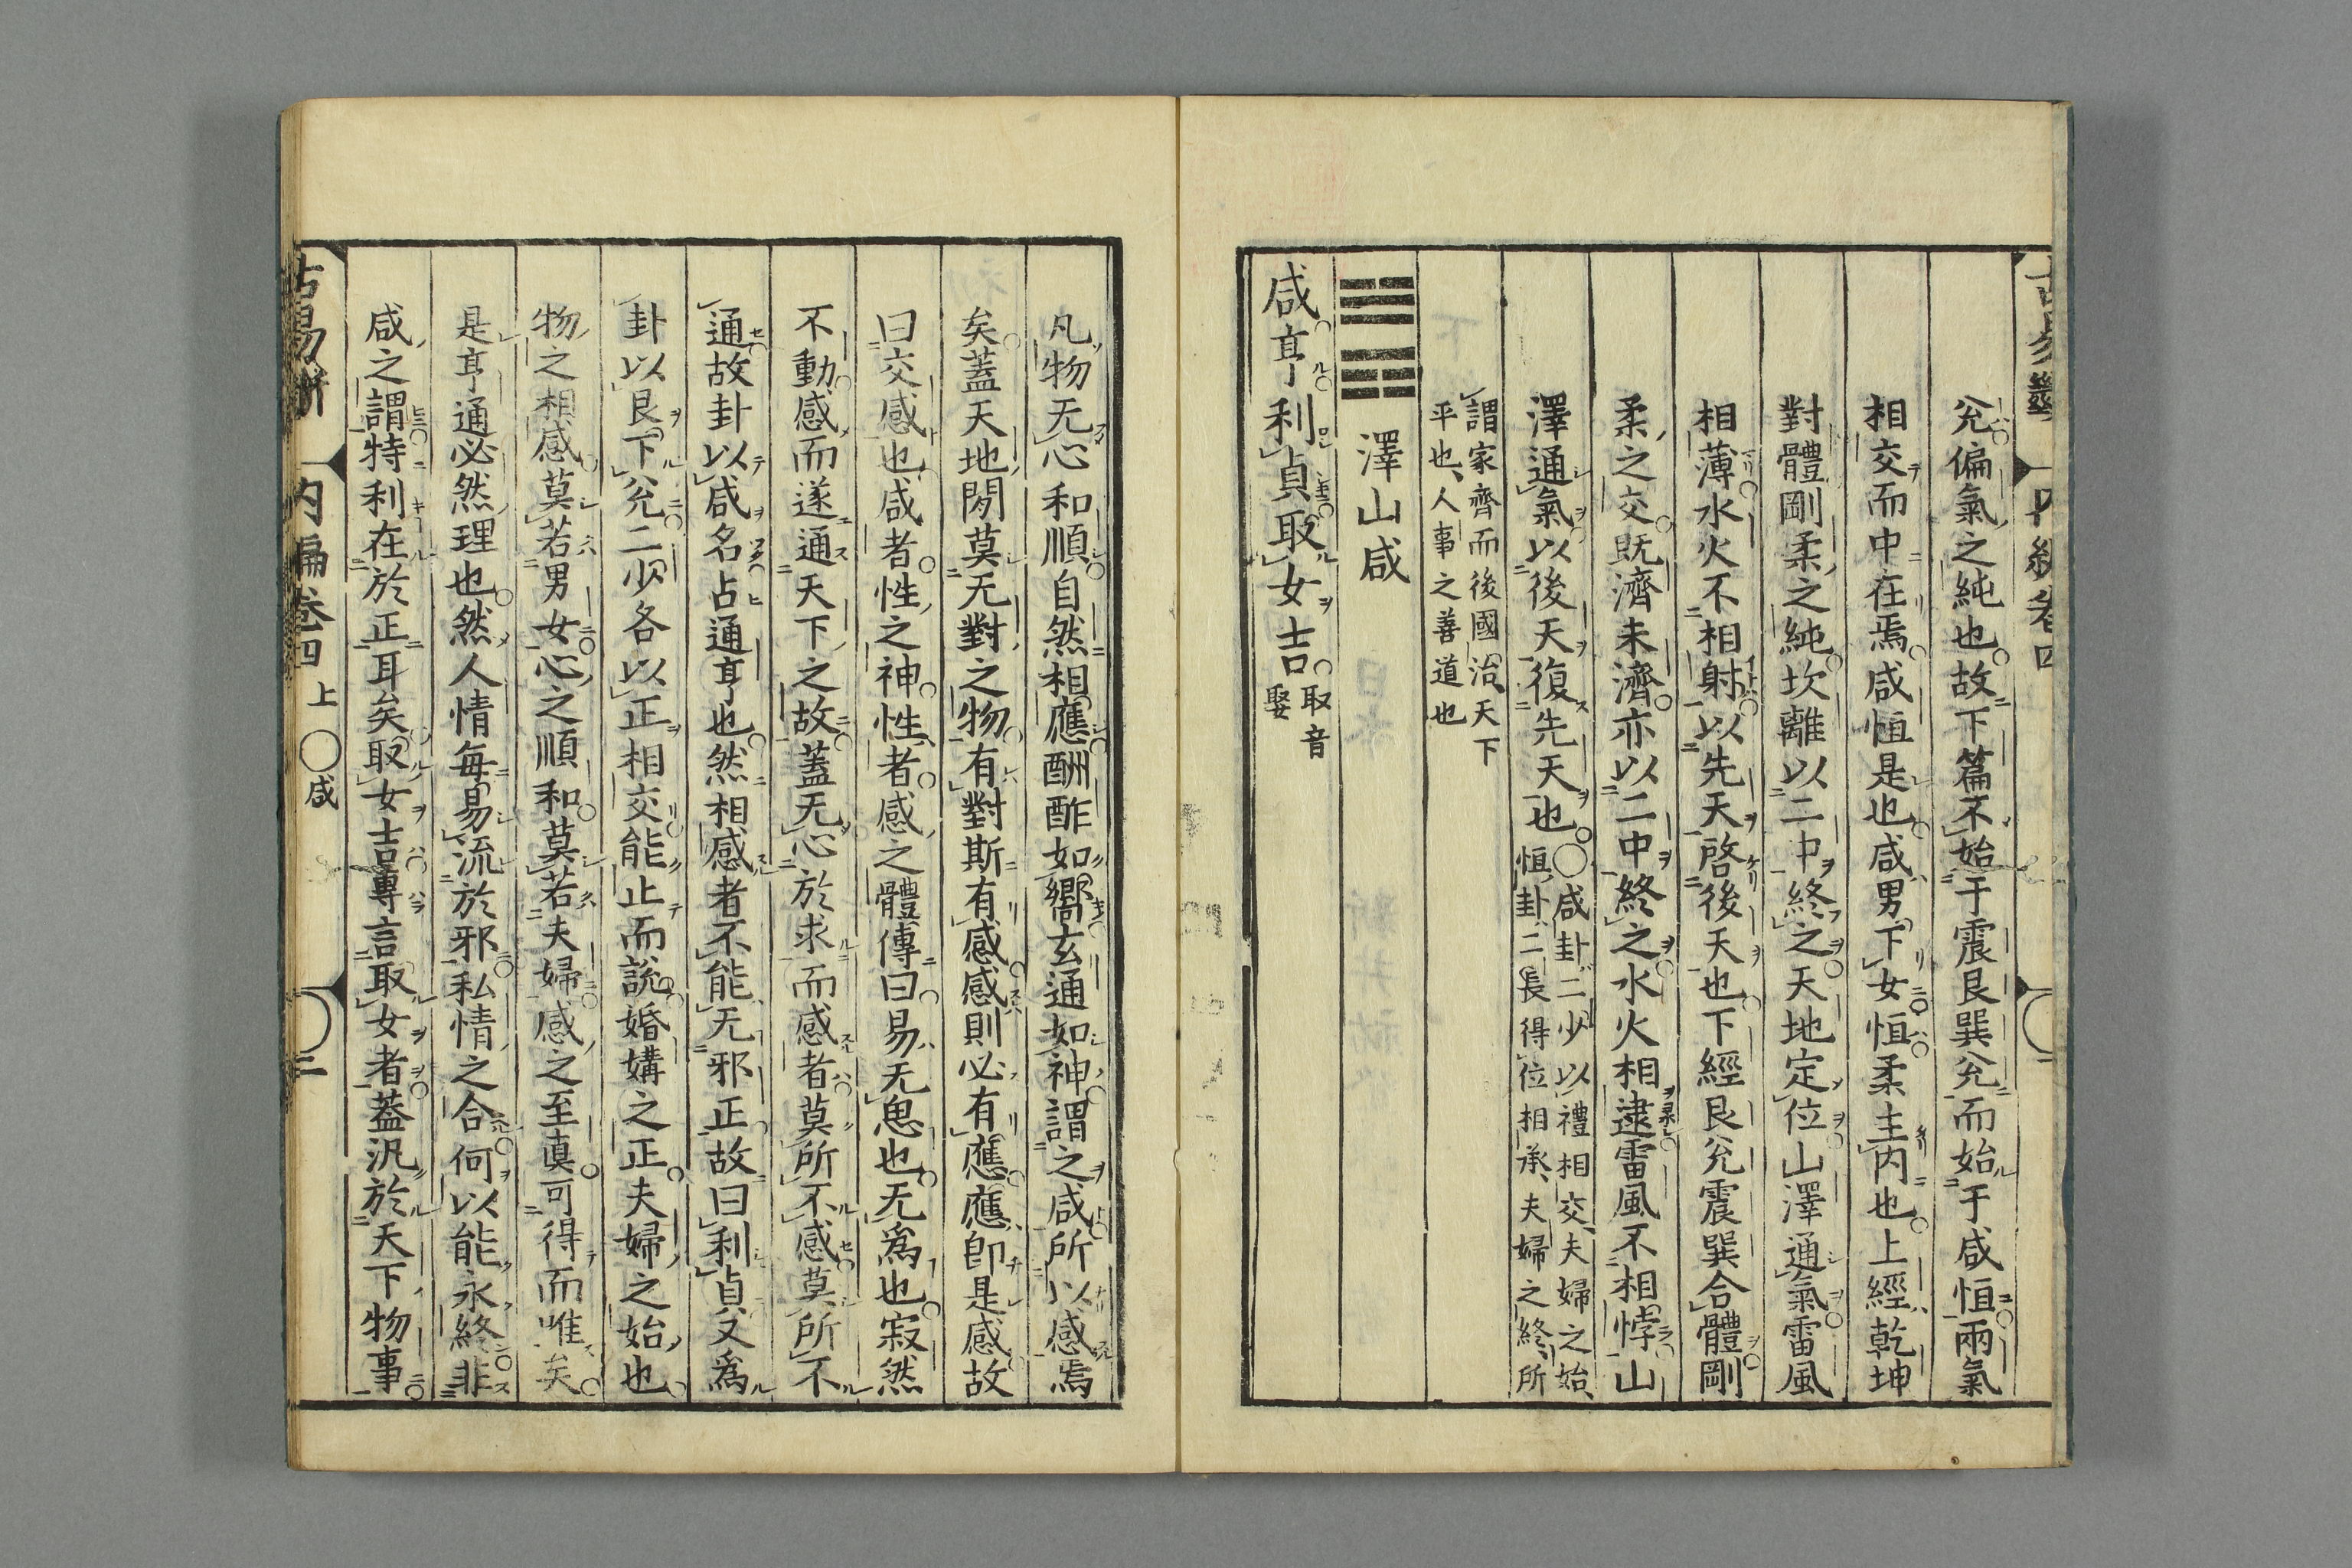 兊偏氣之純也故下篇不始于震艮巽兊而始于咸恒兩氣
相交而中在焉咸恒是也咸男下女恒柔主內也上經乾坤
對體剛柔之純坎離以二中終之天地定位山澤通氣雷風
相薄水火不相射以先天啓後天也下經艮兊震巽合體剛
柔之交既濟未濟亦以二中終之水火相逮雷風不相悖山
澤通氣以後天復先天也〇咸卦二少以禮相交夫婦之始
恒卦二長得位相承夫婦之終所
謂家齊而後國治天下
平也人事之善道也
澤山咸
咸亨利貞取女吉取音
娶
凡物无心和順自然相應酬酢如嚮玄通如神謂之咸所以感焉
矣蓋天地閒莫无對之物有對斯有感感則必有應應卽是感故
曰交感也咸者性之神性者感之體傳曰易无思也无爲也寂然
不動感而遂通天下之故蓋无心於求而感者莫所不感莫所不
通故卦以咸名占通亨也然相感者不能无邪正故曰利貞又爲
卦以艮下兊二少各以正相交能止而說婚媾之正夫婦之始也
物之相感莫若男女心之順和莫若夫婦感之至眞可得而惟矣
是亨通必然理也然人情每易流於邪私情之合何以能永終非
咸之謂特利在於正耳矣取女吉專言取女者蓋汎於天下物事
古易斷
内編卷四
上〇咸
二